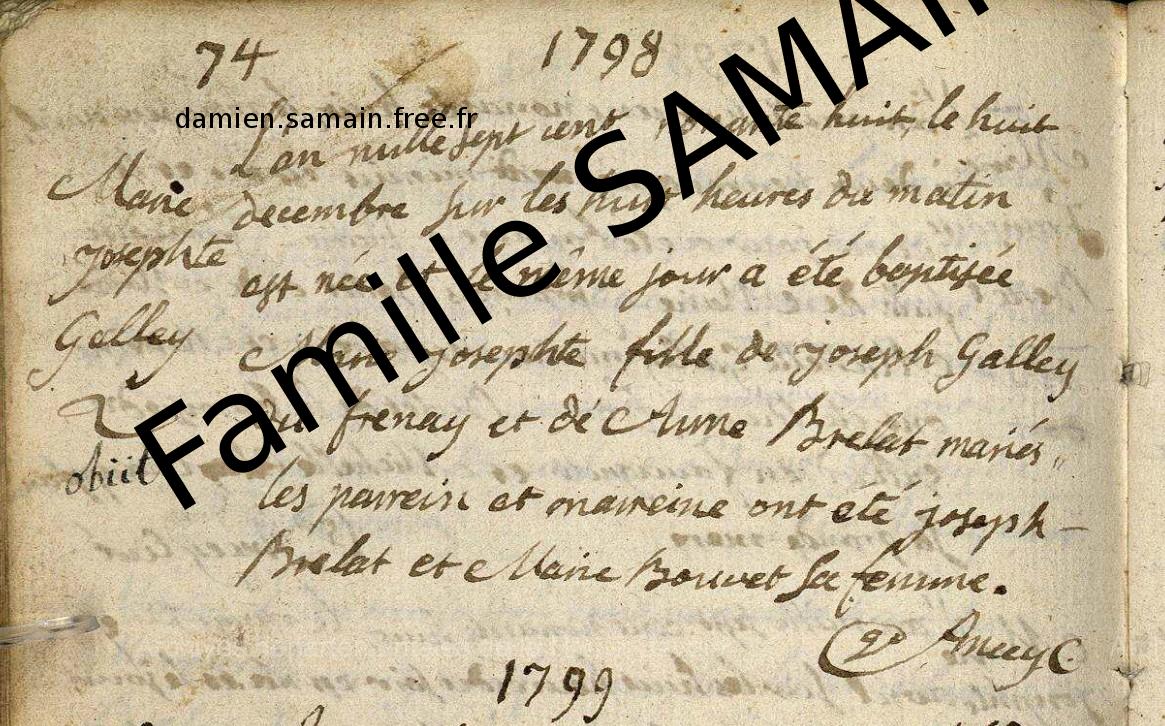 74 1798
damien.samain.free.fr
Famille SAMAIN
L'an mille sept cent nonante huit, le huit
Marie decembre sur les huit heures du matin
josephte est née et le même jour a été baptisée
Gelley Marie josephte fille de joseph Galley
du frenay et de Anne Brelat mariés,,
obiit
les parrein et marreine ont eté joseph
Brelat et Marie Bouvet sa femme.
1799